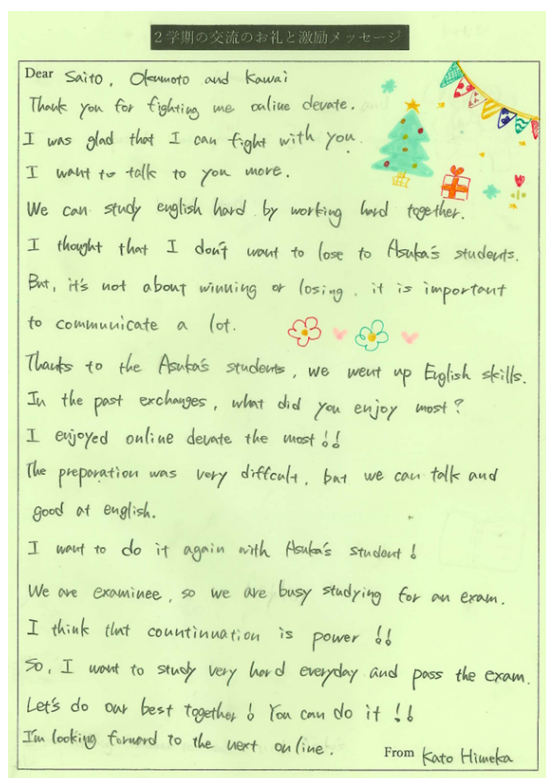 2学期の交流のお礼と激励メッセージ
Dear Saito, Okumoto and Kawai
Thank you for fighting me online devate.
I was glad that I can fight with you.
I want to talk to you more.
We can study english hard by working hard together.
I thought that I don't want to lose to Asuka's students.
But, it's not about winning or losing, it is important
to communicate a lot.
Thanks to the Asuka's students, we went up English skills.
In the past exchanges, what did you enjoy most?
I enjoyed online devate the most!!
The preparation was very diffcult, but we can talk and
good at english.
I want to do it again with Asuka's student!
We are examinee, so we are busy studying for an exam.
I think that countinuation is power!!
So, I want to study very hard everyday and pass the exam.
Let's do our best together! You can do it!!
I'm looking forward to the next online.
From Kato Himeka